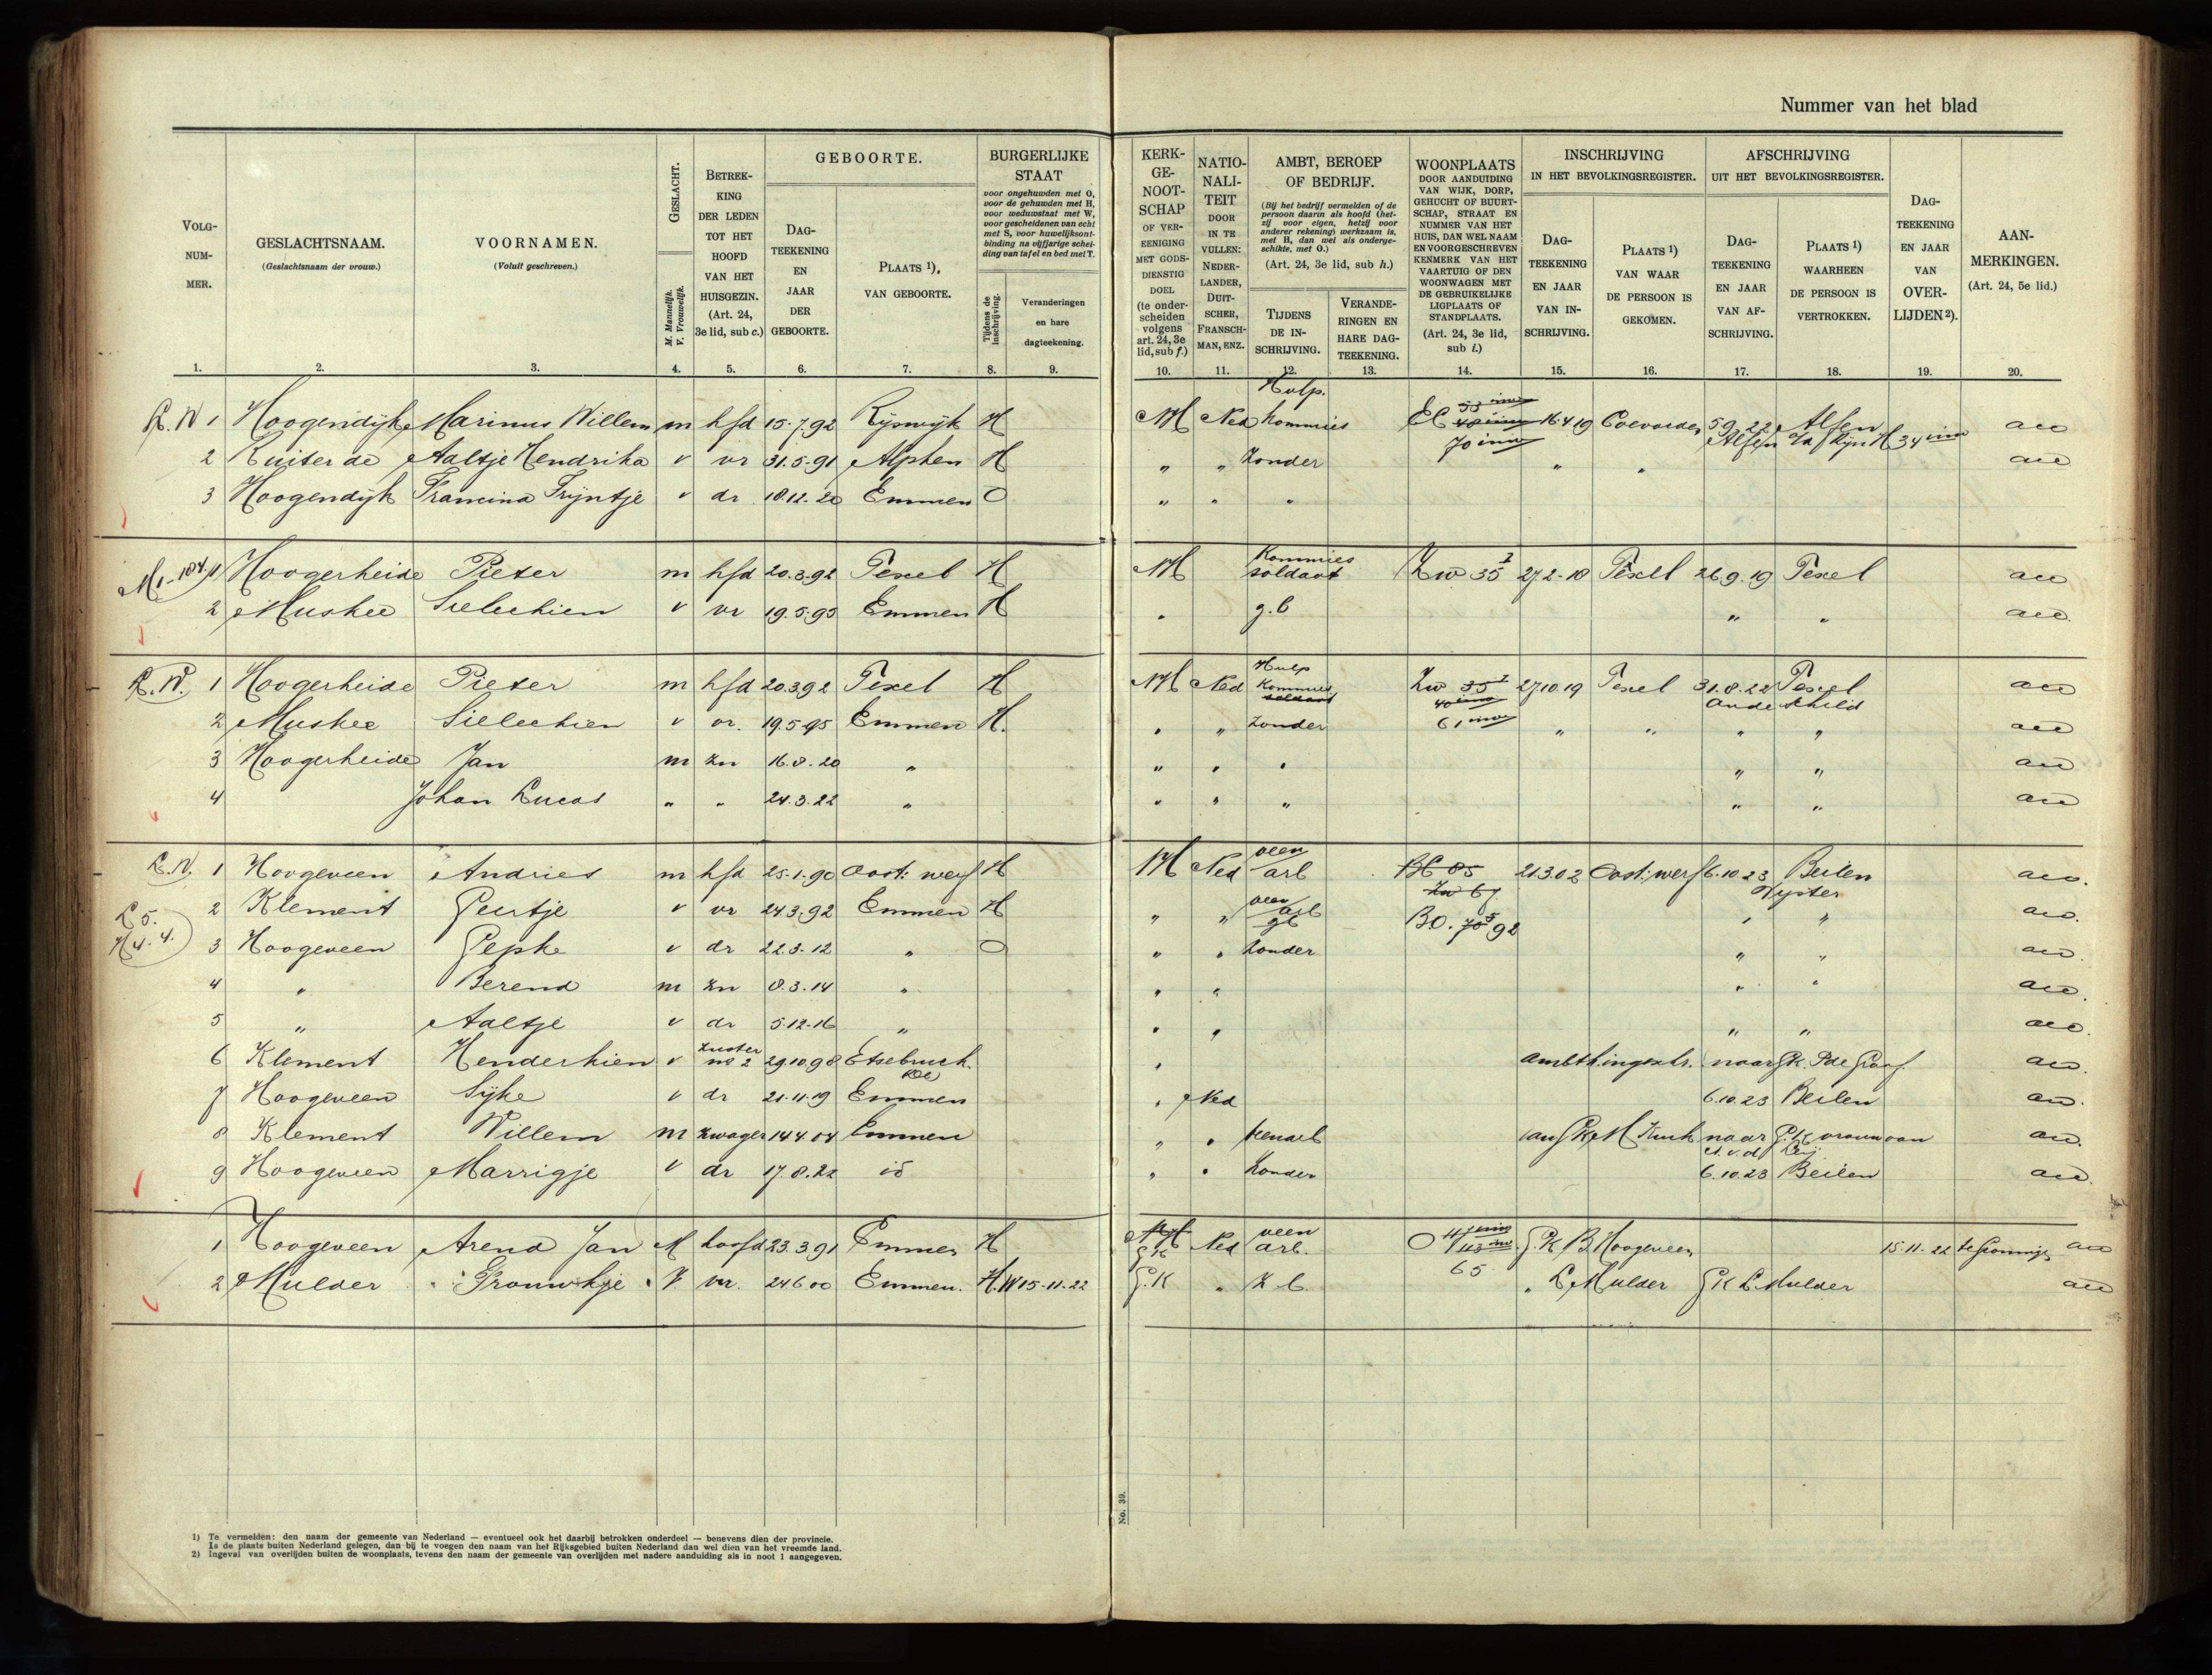 Nummer van het blad
VOLG-NUM-MER.
GESLACHTSNAAM.
(Geslachtsnaam der vrouw.)
VOORNAMEN.
(Voluit geschreven.)
GESLACHT.
M. Mannelijk.
V. Vrouwelijk.
BETREK-KING DER LEDEN TOT HET HOOFD VAN HET HUISGEZIN.
(Art. 24, 3e lid, sub c.)
GEBOORTE.
DAG-TEEKENING EN JAAR DER GEBOORTE.
PLAATS 1), VAN GEBOORTE.
BURGERLIJKE STAAT
voor ongehuwden met O,
voor de gehuwden met H,
voor weduwstaat met W,
voor gescheidenen van echt
met S, voor huwelijksont-
binding na vijfjarige schei-
ding van tafel en bed met T.
Tijdens de inschrijving.
Veranderingen en hare dagteekening.
KERK-GE-NOOT-SCHAP
OF VER-EENIGING MET GODS-DIENSTIG DOEL
(te onder-scheiden volgens art. 24, 3e lid, sub f.)
NATIO-NALI-TEIT
DOOR IN TE VULLEN: NEDER-LANDER, DUIT-SCHER, FRANSCH-MAN, ENZ.
AMBT, BEROEP OF BEDRIJF.
(Bij het bedrijf vermelden of de
persoon daarin als hoofd (het-
zij voor eigen, hetzij voor
anderer rekening) werkzaam is,
met H, dan wel als onderge-
schikte, met O.)
(Art. 24, 3e lid, sub h.)
TIJDENS DE IN-SCHRIJVING.
VERANDE-RINGEN EN HARE DAG-TEEKENING.
WOONPLAATS
DOOR AANDUIDING
VAN WIJK, DORP,
GEHUCHT OF BUURT-
SCHAP, STRAAT EN
NUMMER VAN HET
HUIS, DAN WEL NAAM
EN VOORGESCHREVEN
KENMERK VAN HET
VAARTUIG OF DEN
WOONWAGEN MET
DE GEBRUIKELIJKE
LIGPLAATS OF
STANDPLAATS.
(Art. 24, 3e lid, sub i.)
INSCHRIJVING
IN HET BEVOLKINGSREGISTER.
DAG-TEEKENING EN JAAR VAN IN-SCHRIJVING.
PLAATS 1) VAN WAAR DE PERSOON IS GEKOMEN.
AFSCHRIJVING
UIT HET BEVOLKINGSREGISTER.
DAG-TEEKENING EN JAAR VAN AF-SCHRIJVING.
PLAATS 1) WAARHEEN DE PERSOON IS VERTROKKEN.
DAG-TEEKENING EN JAAR VAN OVER-LIJDEN 2).
AAN-MERKINGEN.
(Art. 24, 5e lid.)
1. 2. 3. 4. 5. 6. 7. 8. 9. 10. 11. 12. 13. 14. 15. 16. 17. 18. 19. 20.
1 Hoogendijk Marinus Willem m hfd 15.7.92 Rijswijk H NH Ned Hulp. kommies 16.4.19 Coevorden 5.9.22 Alfen
2 Ruiter de Aaltje Hendrika v vr 31.5.91 Alphen H " " Zonder 70 " "
3 Hoogendijk Francina Trijntje v dr 18.12.20 Emmen O " " "
1 Hoogerheide Pieter m hfd 20.3.92 Texel H NH Kommies soldaat Zw 35 27.2.18 Texel 26.9.19 Texel
2 Muskee Sielechien v vr 19.5.95 Emmen H " g.b " "
1 Hoogerheide Pieter m hfd 20.3.92 Texel H NH Ned Hulp Kommies soldaat Zw 35 27.10.19 Texel 31.8.22 Texel
2 Muskee Sielechien v vr. 19.5.95 Emmen H. " " Zonder 61 " " " "
3 Hoogerheide Jan m zn 16.8.20 " " " " " "
4 Johan Lucas " " 24.3.22 " " " " " "
1 Hoogeveen Andries m hfd 25.1.90 Oost: werf H NH Ned veen arb BC 85 21.3.02 Oost: werf 6.10.23 Beilen
2 Klement Geertje v vr 24.3.92 Emmen H " " veen arb Zw 67 " "
3 Hoogeveen Gepke v dr 22.3.12 " O " " Zonder " "
4 " Berend m zn 8.3.14 " " " " "
5 " Aaltje v dr 5.12.16 " " " " "
6 Klement Henderkien v zuster no 2 29.10.98 "
7 Hoogeveen Sijke v dr 21.11.19 Emmen " Ned 6.10.23 Beilen
8 Klement Willem m zwager 14.4.04 Emmen " " veenarb naar
9 Hoogeveen Marrigje v dr 17.8.22 id " " Zonder 6.10.23 Beilen
1 Hoogeveen Arend Jan M hoofd 23.3.91 Emmen H G.K Ned veen arb. G.K B Hoogeveen 15.11.22 te Groningen
2 Mulder Grouwkje V. vr. 24.6.00 Emmen. H. W 15-11-22 G.K " Z b. 65 " L Mulder G K L Mulder
No. 39.
1) Te vermelden: den naam der gemeente van Nederland — eventueel ook het daarbij betrokken onderdeel — benevens dien der provincie.
Is de plaats buiten Nederland gelegen, dan bij te voegen den naam van het Rijksgebied buiten Nederland dan wel dien van het vreemde land.
2) Ingeval van overlijden buiten de woonplaats, tevens den naam der gemeente van overlijden met nadere aanduiding als in noot 1 aangegeven.